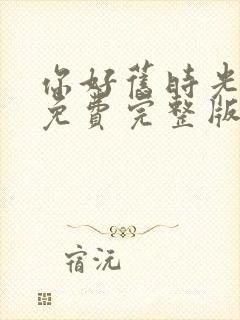 你好旧時光
免費完整版
宿沅